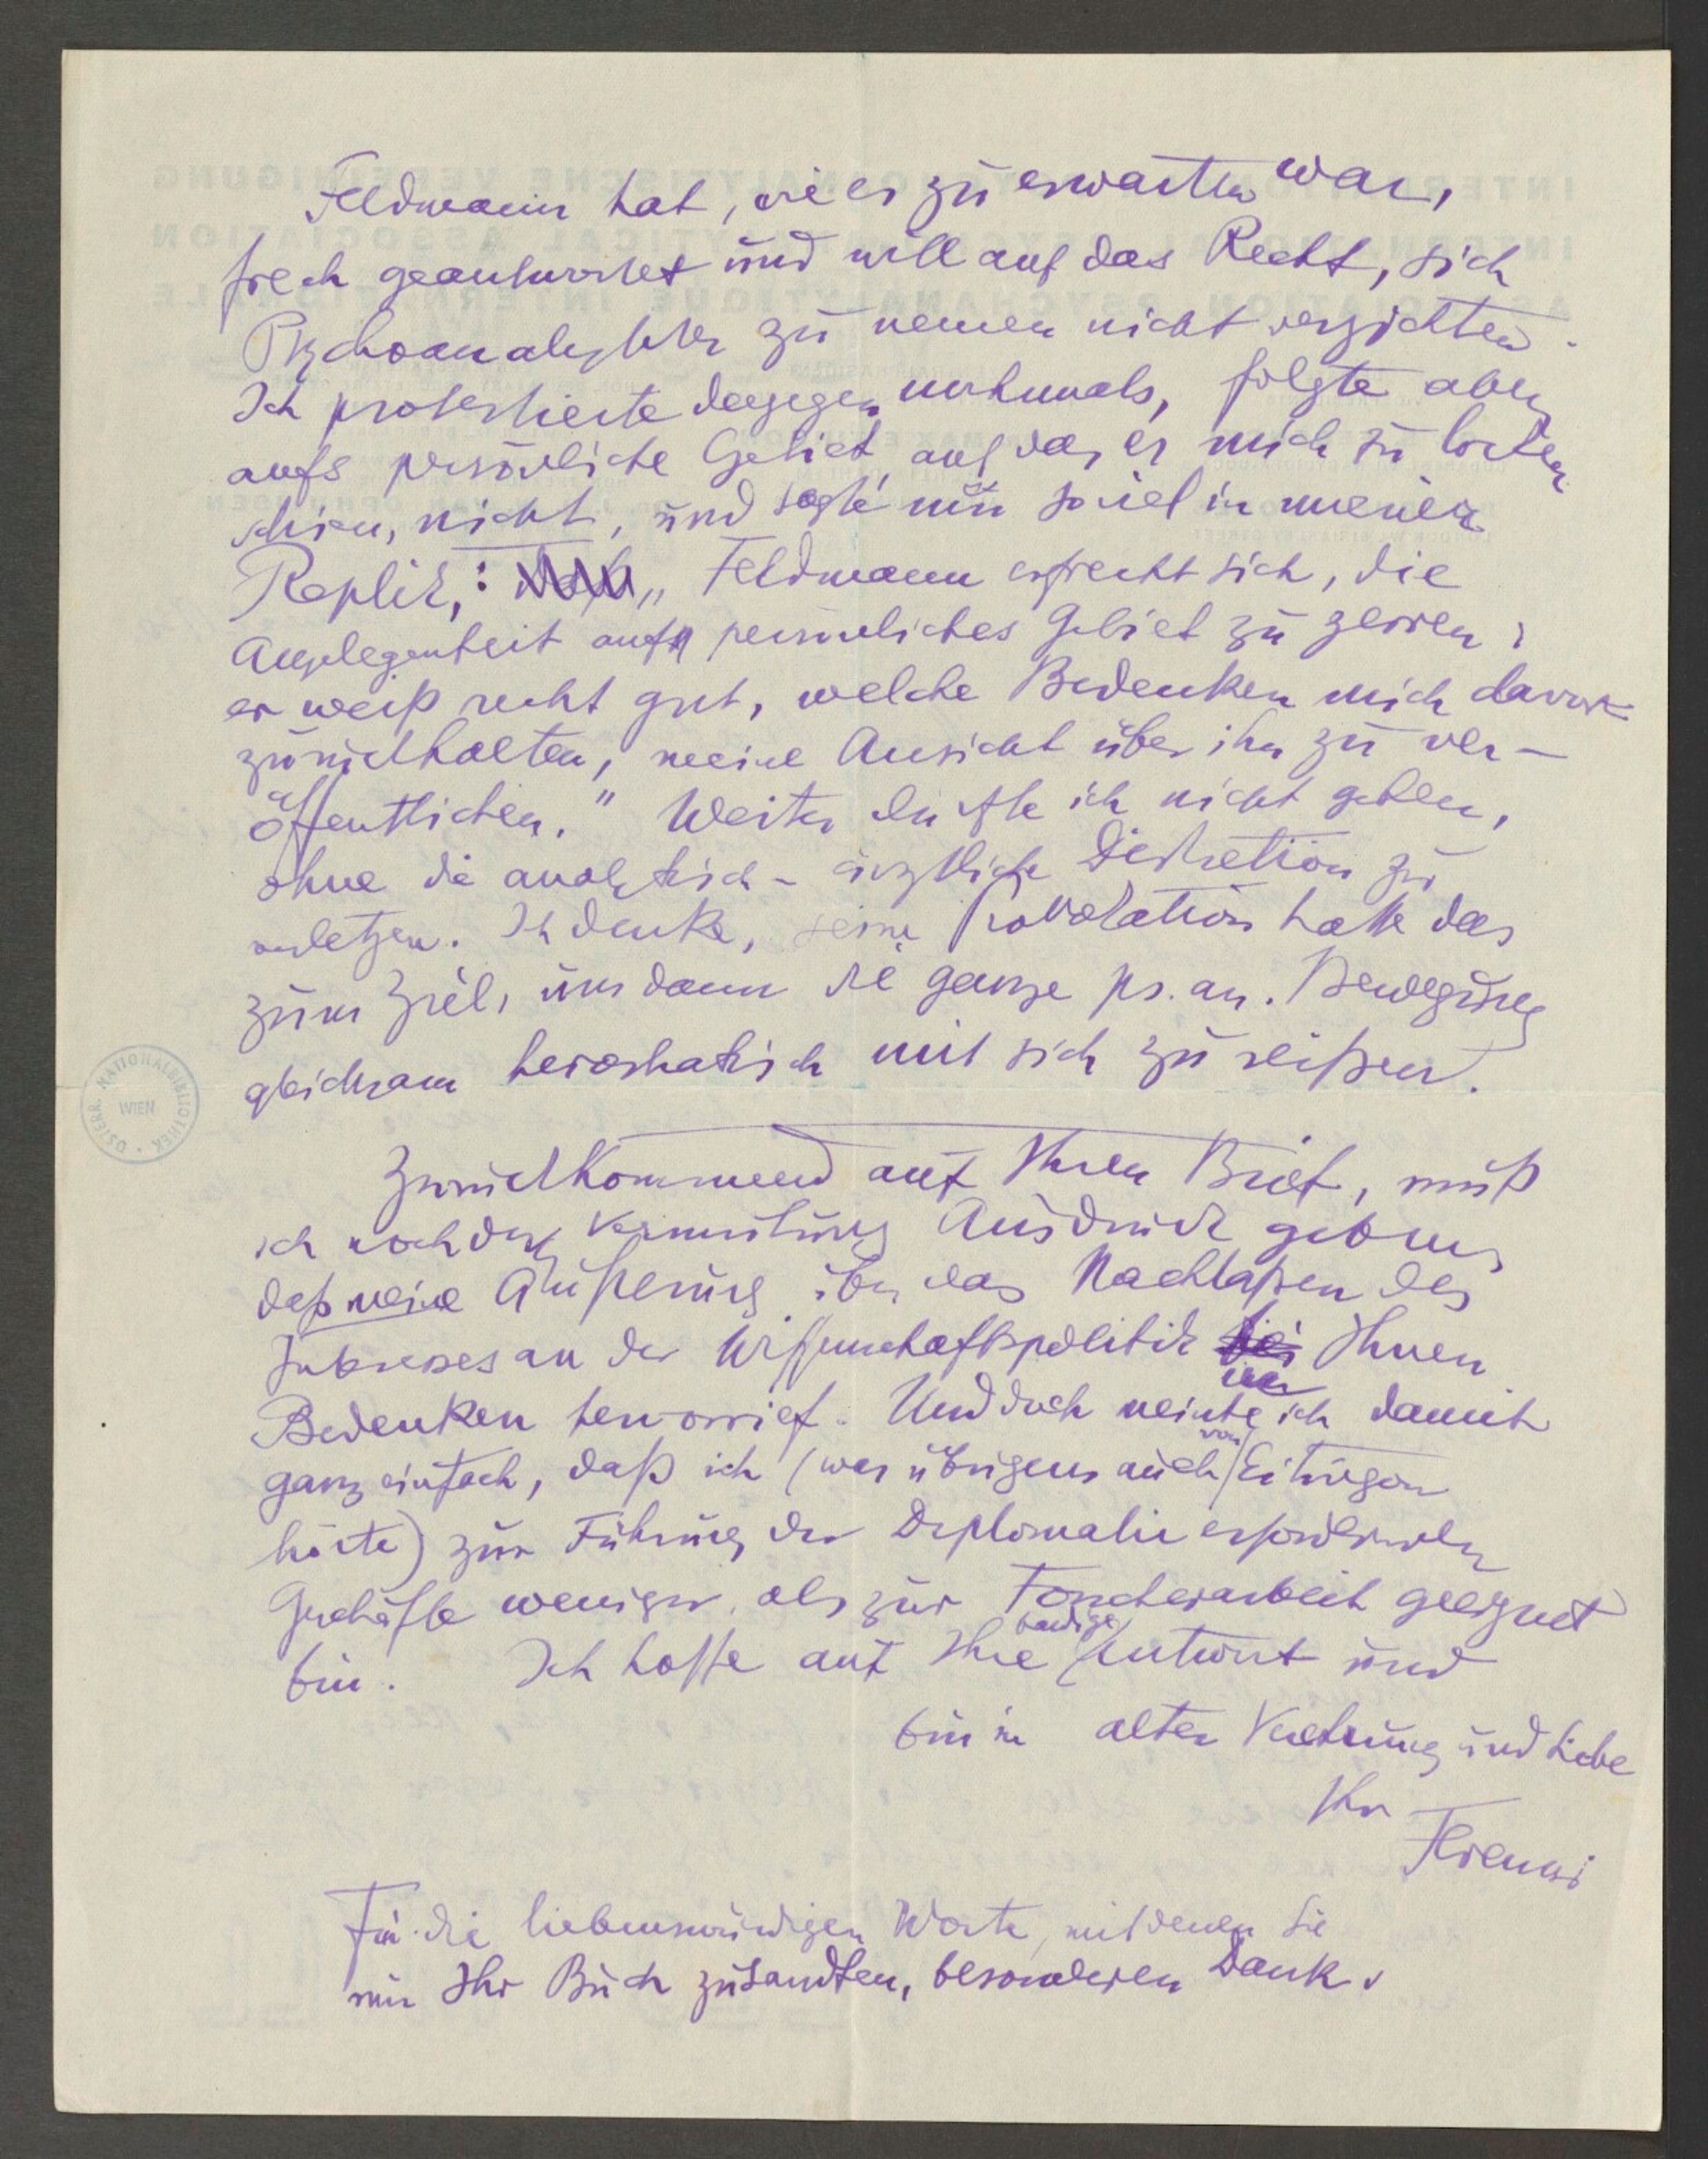 Feldmann hat, wie es zu erwarten war,
frech geantwortet und will auf das Recht, sich
Psychoanalytiker zu nennen nicht verzichten.
Ich protestierte dagegen nochmals, folgte aber
aufs persönliche Gebiet, auf das er mich zu locken
schien, nicht, und sagte nur soviel in meiner
Replik: „Feldmann erfrecht sich, die
Angelegenheit auf persönliches Gebiet zu zerren;
er weiß recht gut, welche Bedenken mich davor
zurückhalten, meine Ansicht über ihn zu ver-
öffentlichen." Weiter durfte ich nicht gehen,
ohne die analytisch-ärztliche Diskretion zu
verletzen. Ich denke, seine Provokation hatte das
zum Ziel, um dann die ganze ps. an. Bewegung
gleichsam herostratisch mit sich zu reißen.
Zurückkommend auf Ihren Brief, muß
ich noch der Vermutung Ausdruck geben,
daß meine Äußerung über das Nachlaßen des
Interesses an der Wißenschaftspolitik bei Ihnen
Bedenken hervorrief. Und doch meinte ich damit
ganz einfach, daß ich (was übrigens auch von Eitingon
hörte) zur Führung der Diplomatie erfordernden
Geschäfte weniger, als zur Forscherarbeit geeignet
bin. Ich hoffe auf Ihre baldige Antwort und
bin in alter Verehrung und Liebe
Ihr
Ferenczi
Für die liebenswürdigen Worte, mit denen Sie
mir Ihr Buch zusandten, besonderen Dank.
ÖSTERR. NATIONALBIBLIOTHEK
WIEN